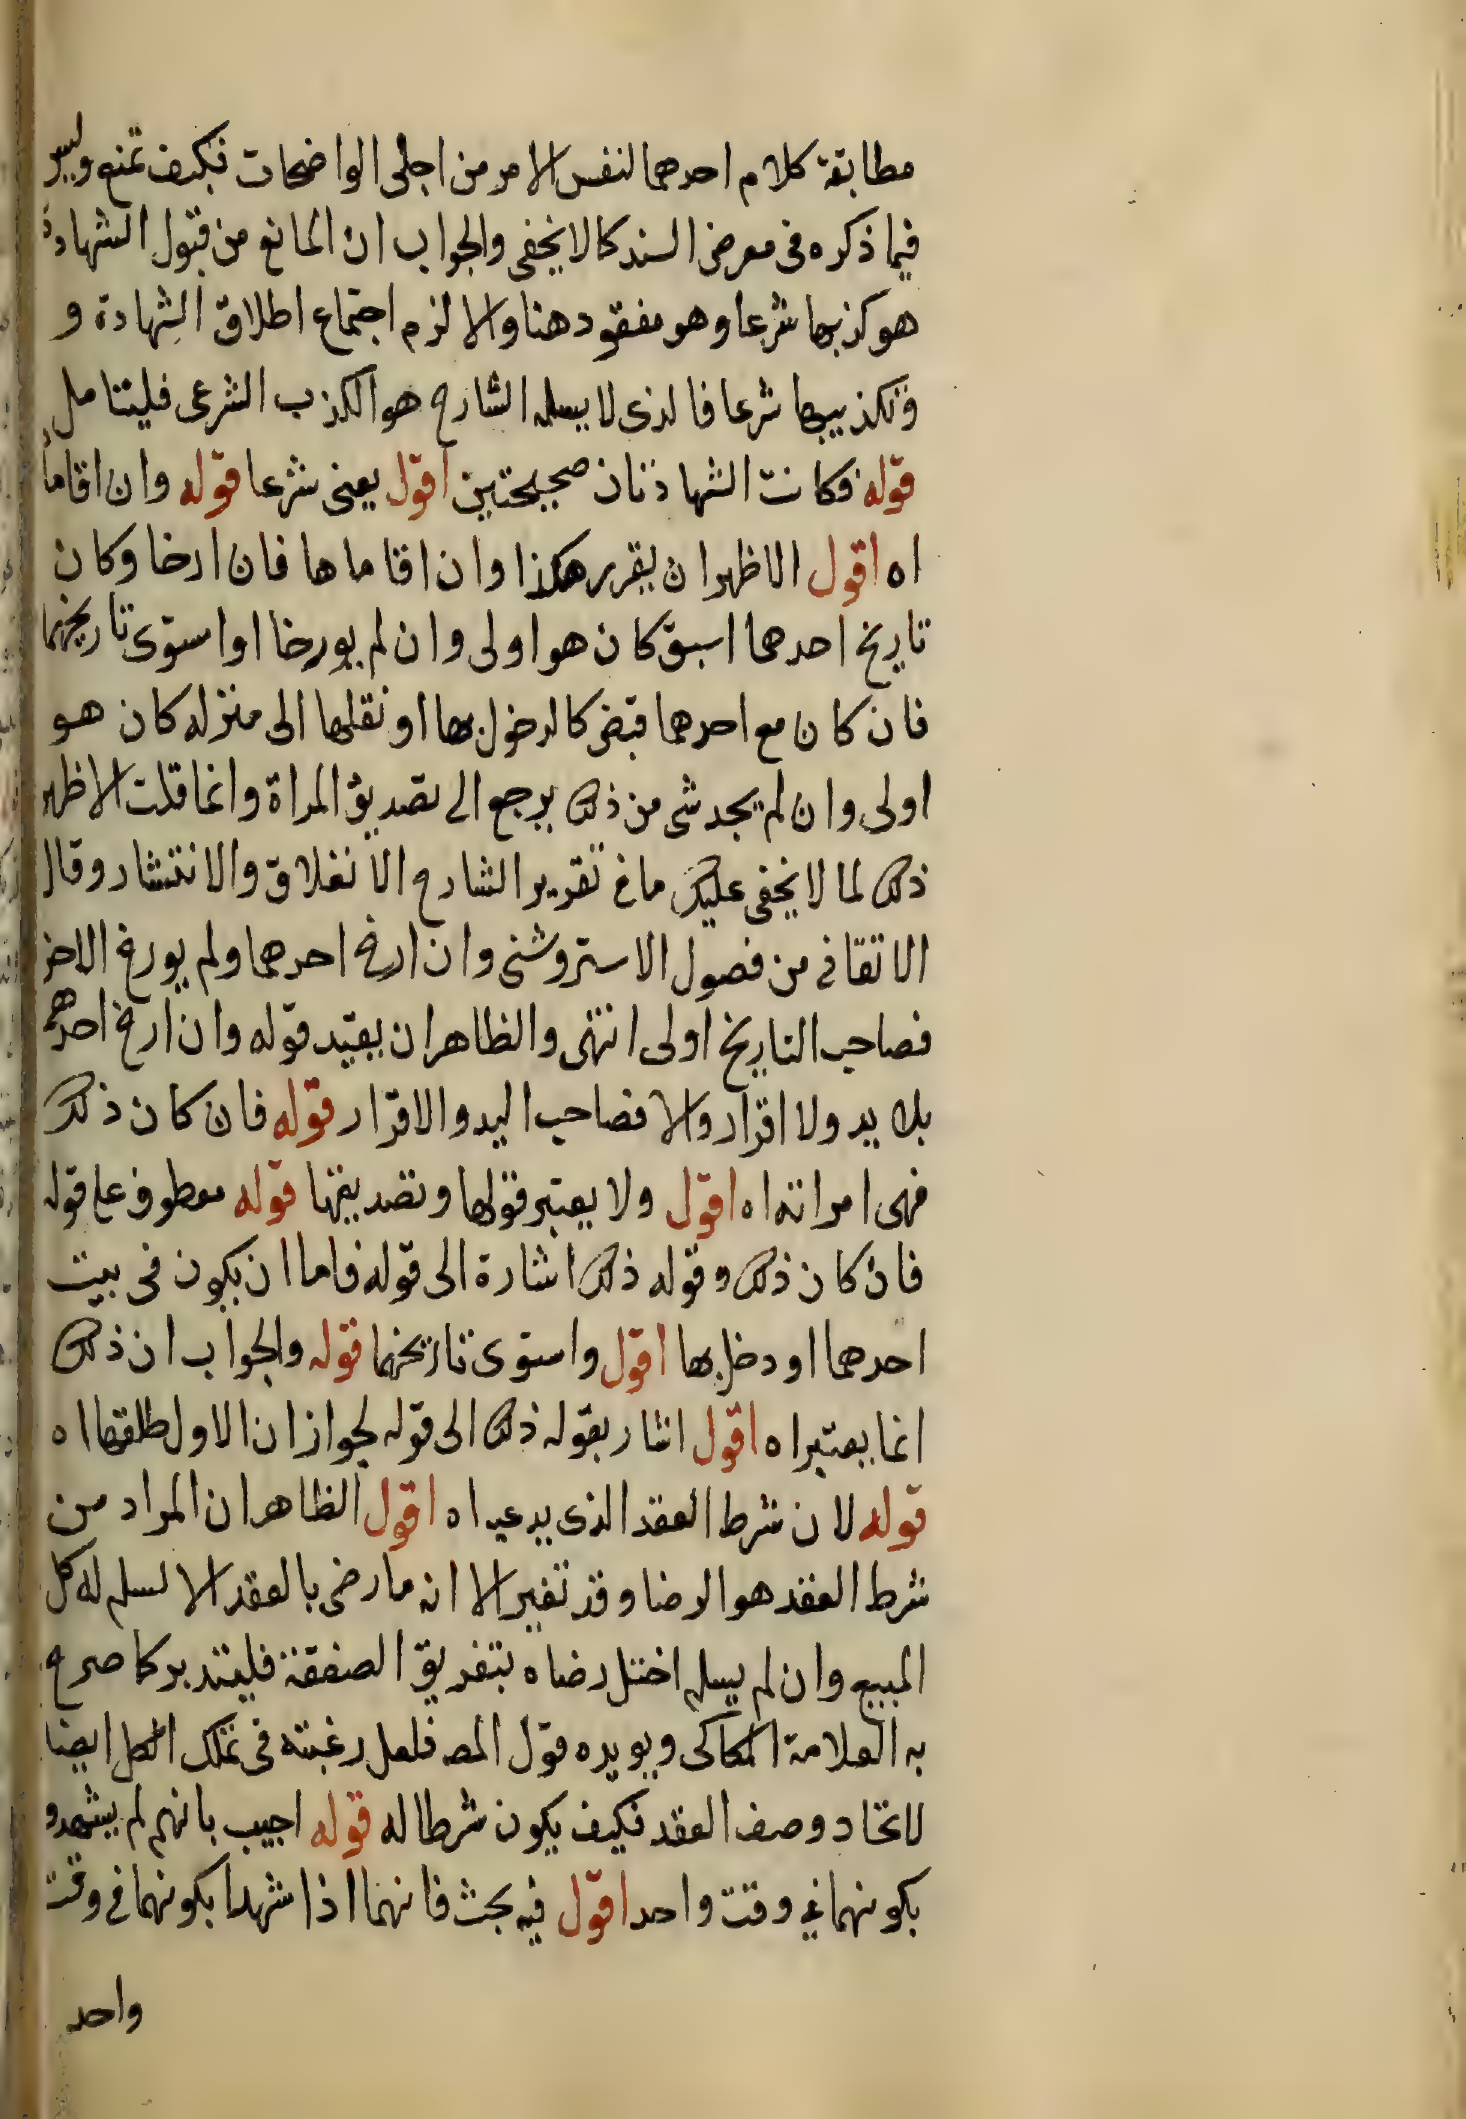 مطابقة كلام احدهما لنفس الامر من اجلى الواضحات فكيف تمنع وليس
فيما ذكره فى معرض السند كما لا يخفى والجواب ان المانع من قبول الشهادة
هو كذبها شرعا وهو مفقود هنا والا لزم اجتماع اطلاق الشهادة و
وتكذيبها شرعا فالذى لا يسلمه الشارح هو الكذب الشرعى فليتامل
قوله فكانت الشهادتان صحيحتين اقول يعنى شرعا قوله وان اقاما
اه اقول الاظهر ان يقرر هكذا وان اقاماها فان ارخا وكان
تاريخ احدهما اسبق كان هو اولى وان لم يورخا او استوى تاريخهما
فان كان مع احدهما قبض كالدخول بها او نقلها الى منزله كان هو
اولى وان لم يجد شى من ذلك يرجع الى تصديق المراة وانما قلت الاظهر
ذلك لما لا يخفى عليك ما فى تقرير الشارح الانغلاق والانتشار وقال
الاتقانى من فصول الاستروشنى وان ارخ احدهما ولم يورخ الاخر
فصاحب التاريخ اولى انتهى والظاهر ان يقيد قوله وان ارخ احدهما
بلا يد ولا اقرار والا فصاحب اليد والاقرار قوله فان كان ذلك
فهى امراته اه اقول ولا يعتبر قولها وتصديقها قوله معطوف على قوله
فان كان ذلك وقوله ذلك اشارة الى قوله فاما ان يكون فى بيت
احدهما او دخل بها اقول واستوى تاريخهما قوله والجواب ان ذلك
انما يعتبر اه اقول اشار بقوله ذلك الى قوله لجواز ان الاول طلقها اه
قوله لان شرط العقد الذى يدعيه اه اقول الظاهر ان المراد من
شرط العقد هو الرضا وقد تغير الا انه ما رضى بالعقد الا ليسلم له كل
المبيع وان لم يسلم اختل رضاه بتفريق الصفقة فليتدبر كما صرح
به العلامة الكاكى ويويده قول المصـ فلعل رغبته فى تملك الكل ايضا
لاتحاد وصف العقد فكيف يكون شرطا له قوله اجيب بانهم لم يشهدو
بكونهما فى وقت واحد اقول فيه بحث فانهما اذا شهدا بكونهما فى وقت
واحد